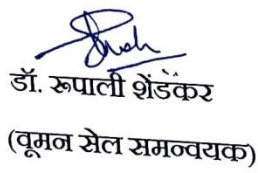 डॉ. रूपाली शेंडेकर
(वूमन सेल समन्वयक)